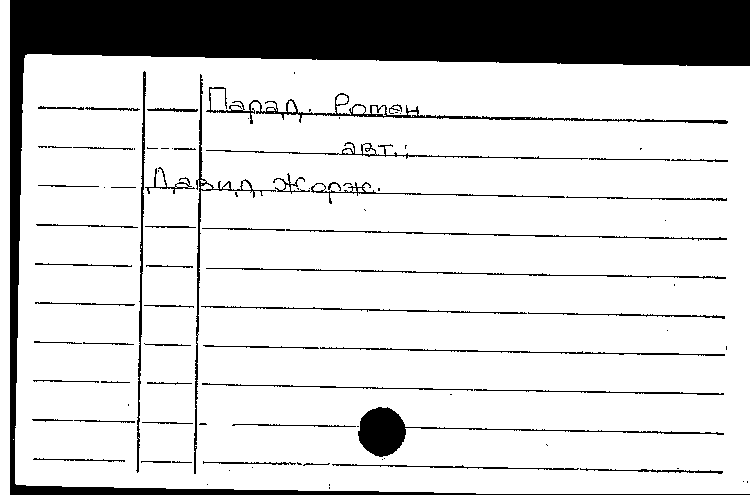 Парад. Ромен
авт.:
Давид, Жорж.